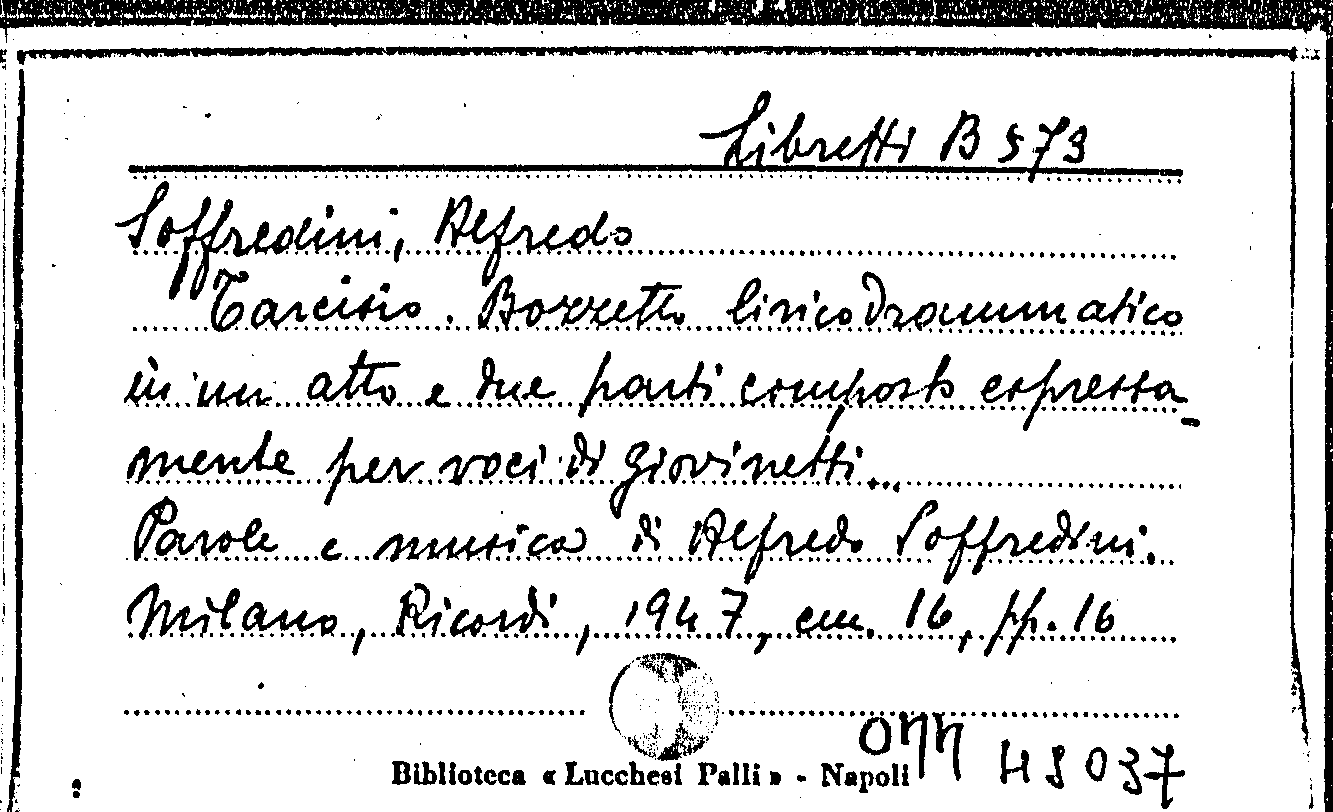 Libretti B 573
Soffredini, Alfredo
Tarcisio. Bozzetto lirico drammatico
in un atto e due parti composto espressa-
mente per voci di giovinetti...
Parole e musica di Alfredo Soffredini.
Milano, Ricordi, 1947, cm. 16, pp. 16
Biblioteca « Lucchesi Palli » - Napoli